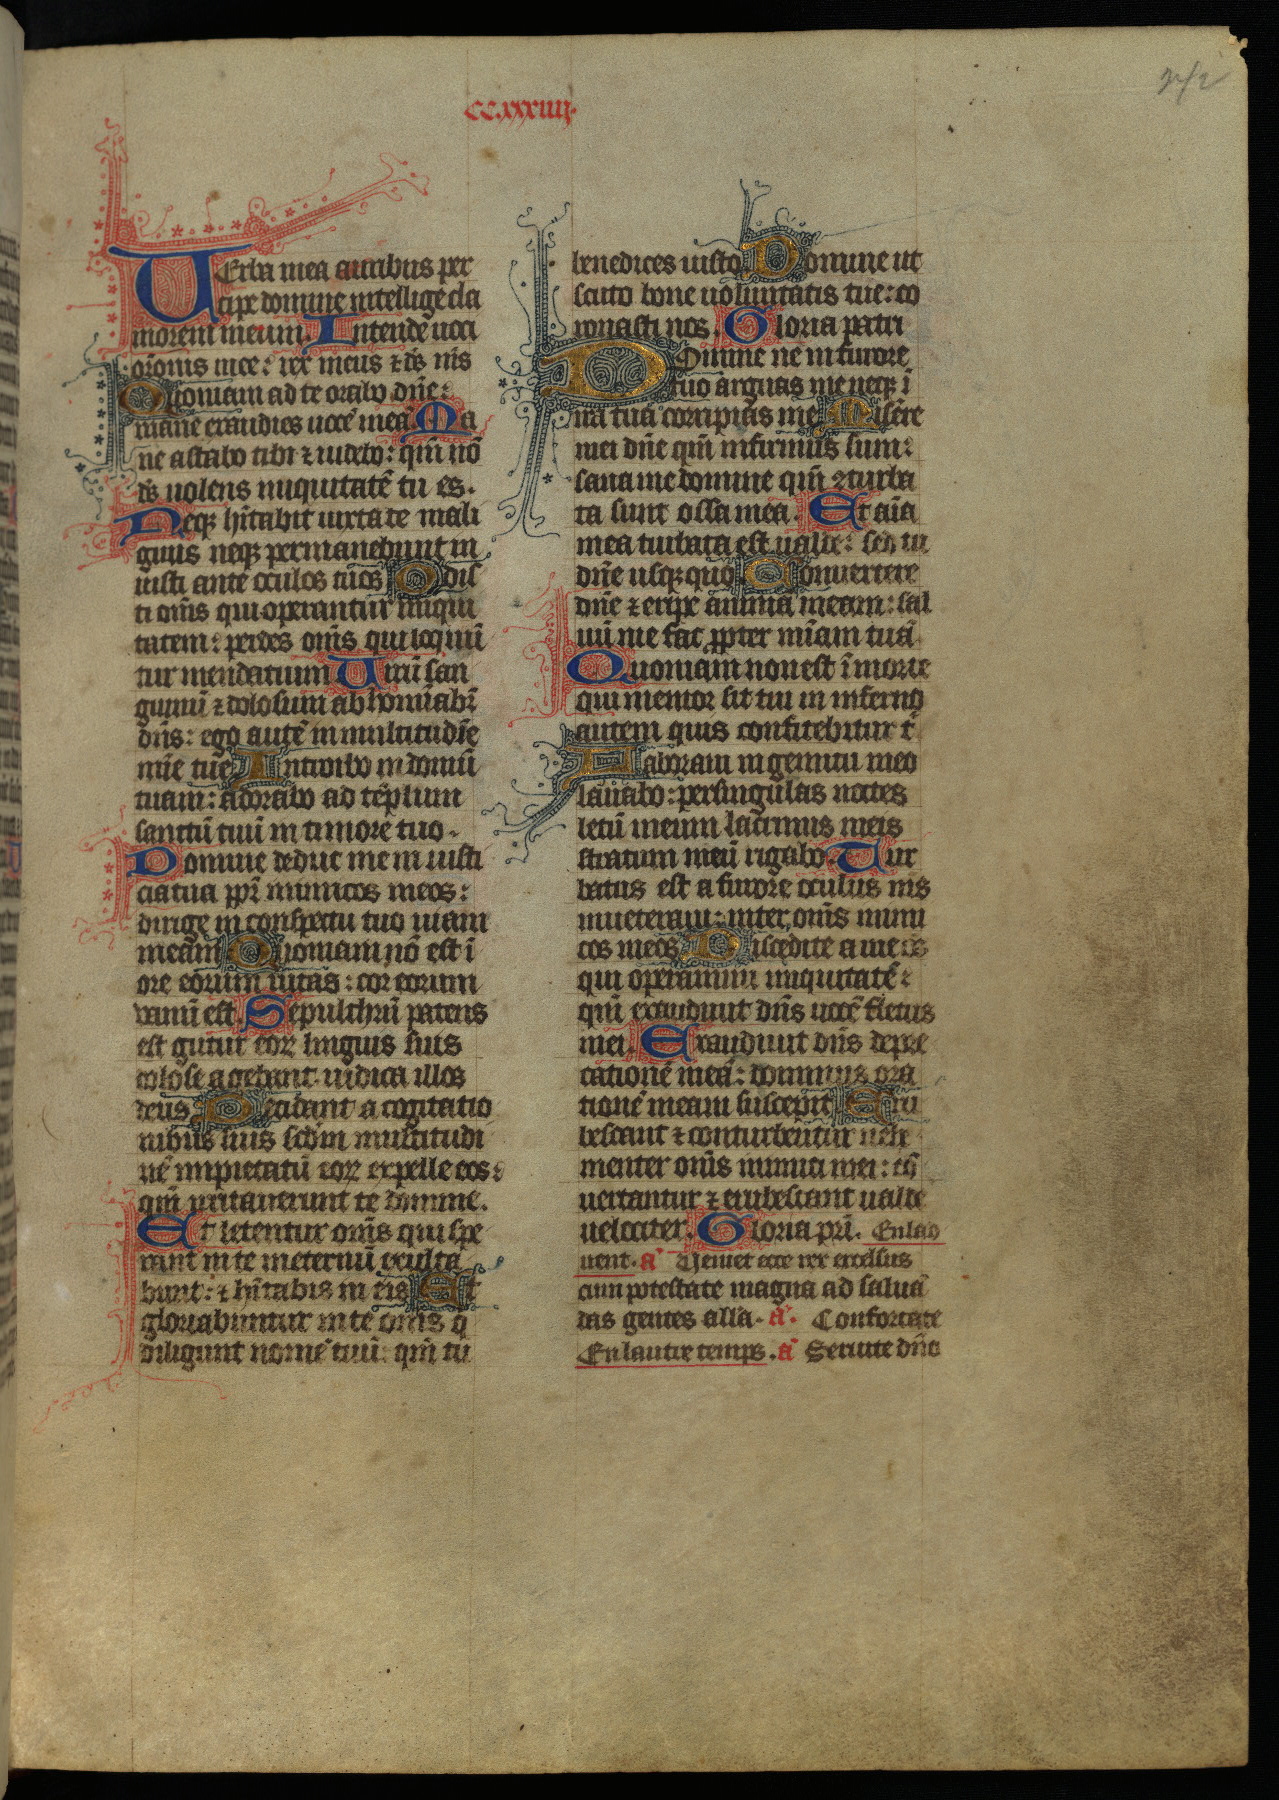 CCxxxiiij.
Uerba mea auribus per
cipe domine intellige cla
morem meum. Intende uoci
orōnis mee: rex meus ⁊ ds̄ ms̄
Quoniam ad te orabo dn̄e:
mane exaudies uocē meā. Ma
ne astabo tibi ⁊ uidebo: qm̄ nō
ds̄ uolens iniquitatē tu es.
Neqꝫ hītabit iuxta te mali
gnus neqꝫ permanebunt in
iusti ante oculos tuos Odis
ti om̄s qui operantur iniqui
tatem: perdes om̄s qui loq̄nū
tur mendatium Uirū san
guinū ⁊ dolosum abhominabr̄
dn̄s: ego autē in multitudīe
mīe tue Introibo in domū
tuam: adorabo ad tēplum
sanctū tuū in timore tuo.
Domine deduc me in iusti
cia tua ppr̄ inimicos meos:
dirige in conspectu tuo uiam
meam Quoniam nō est ī
ore eorum ueritas: cor eorum
vanū est. Sepulchrū patens
est gutur eoꝝ linguis suis
dolose agebant iudica illos
deus Decidant a cogitatio
nibus suis scdm multitudi
nē impietatū eoꝝ expelle eos:
qm̄ irritauerunt te domine.
Et letentur om̄s qui spe
rant in te ineternū exulta
bunt: ⁊ hītabis in eis Et
gloriabuntur in te om̄s q̄
diligunt nomē tuū: qm̄ tu
benedices iusto. Domine ut
scuto bone uoluntatis tue: co
ronasti nos. Gloria patri
Domine ne in furore
tuo arguas me neqꝫ ī
ira tua corripias me Misere
mei dn̄e qm̄ infirmus sum:
sana me domine qm̄ ꝯturba
ta sunt ossa mea. Et aīa
mea turbata est ualde: sed tu
dn̄e usqꝫ quo Conuertere
dn̄e ⁊ eripe animā meam: sal
uū me fac ꝓpter mīam tuā
Quoniam non est ī morte
qui memor sit tui in inferno
autem quis confitebitur t̄
Laboraui in gemitu meo
lauabo: per singulas noctes
letū meum lacrimis meis
stratum meū rigabo. Tur
batus est a furore oculus ms̄
inueteraui: inter om̄s inimi
cos meos Discedite a me os
qui operamini iniquitatē:
qm̄ exaudiuit dn̄s uocē fletus
mei. Exaudiuit dn̄s depre
cationē meā: dominus ora
tionē meam suscepit Eru
bescant ⁊ conturbentur uehe
menter om̄s inimici mei: cō
uertantur ⁊ erubescant ualde
uelociter. Gloria pri. En lad
uent. a Ueniet ecce rex excelsus
cum potestate magna ad saluā
das gentes alla. a. Confortate
En lautre temps. a Seruite dn̄o